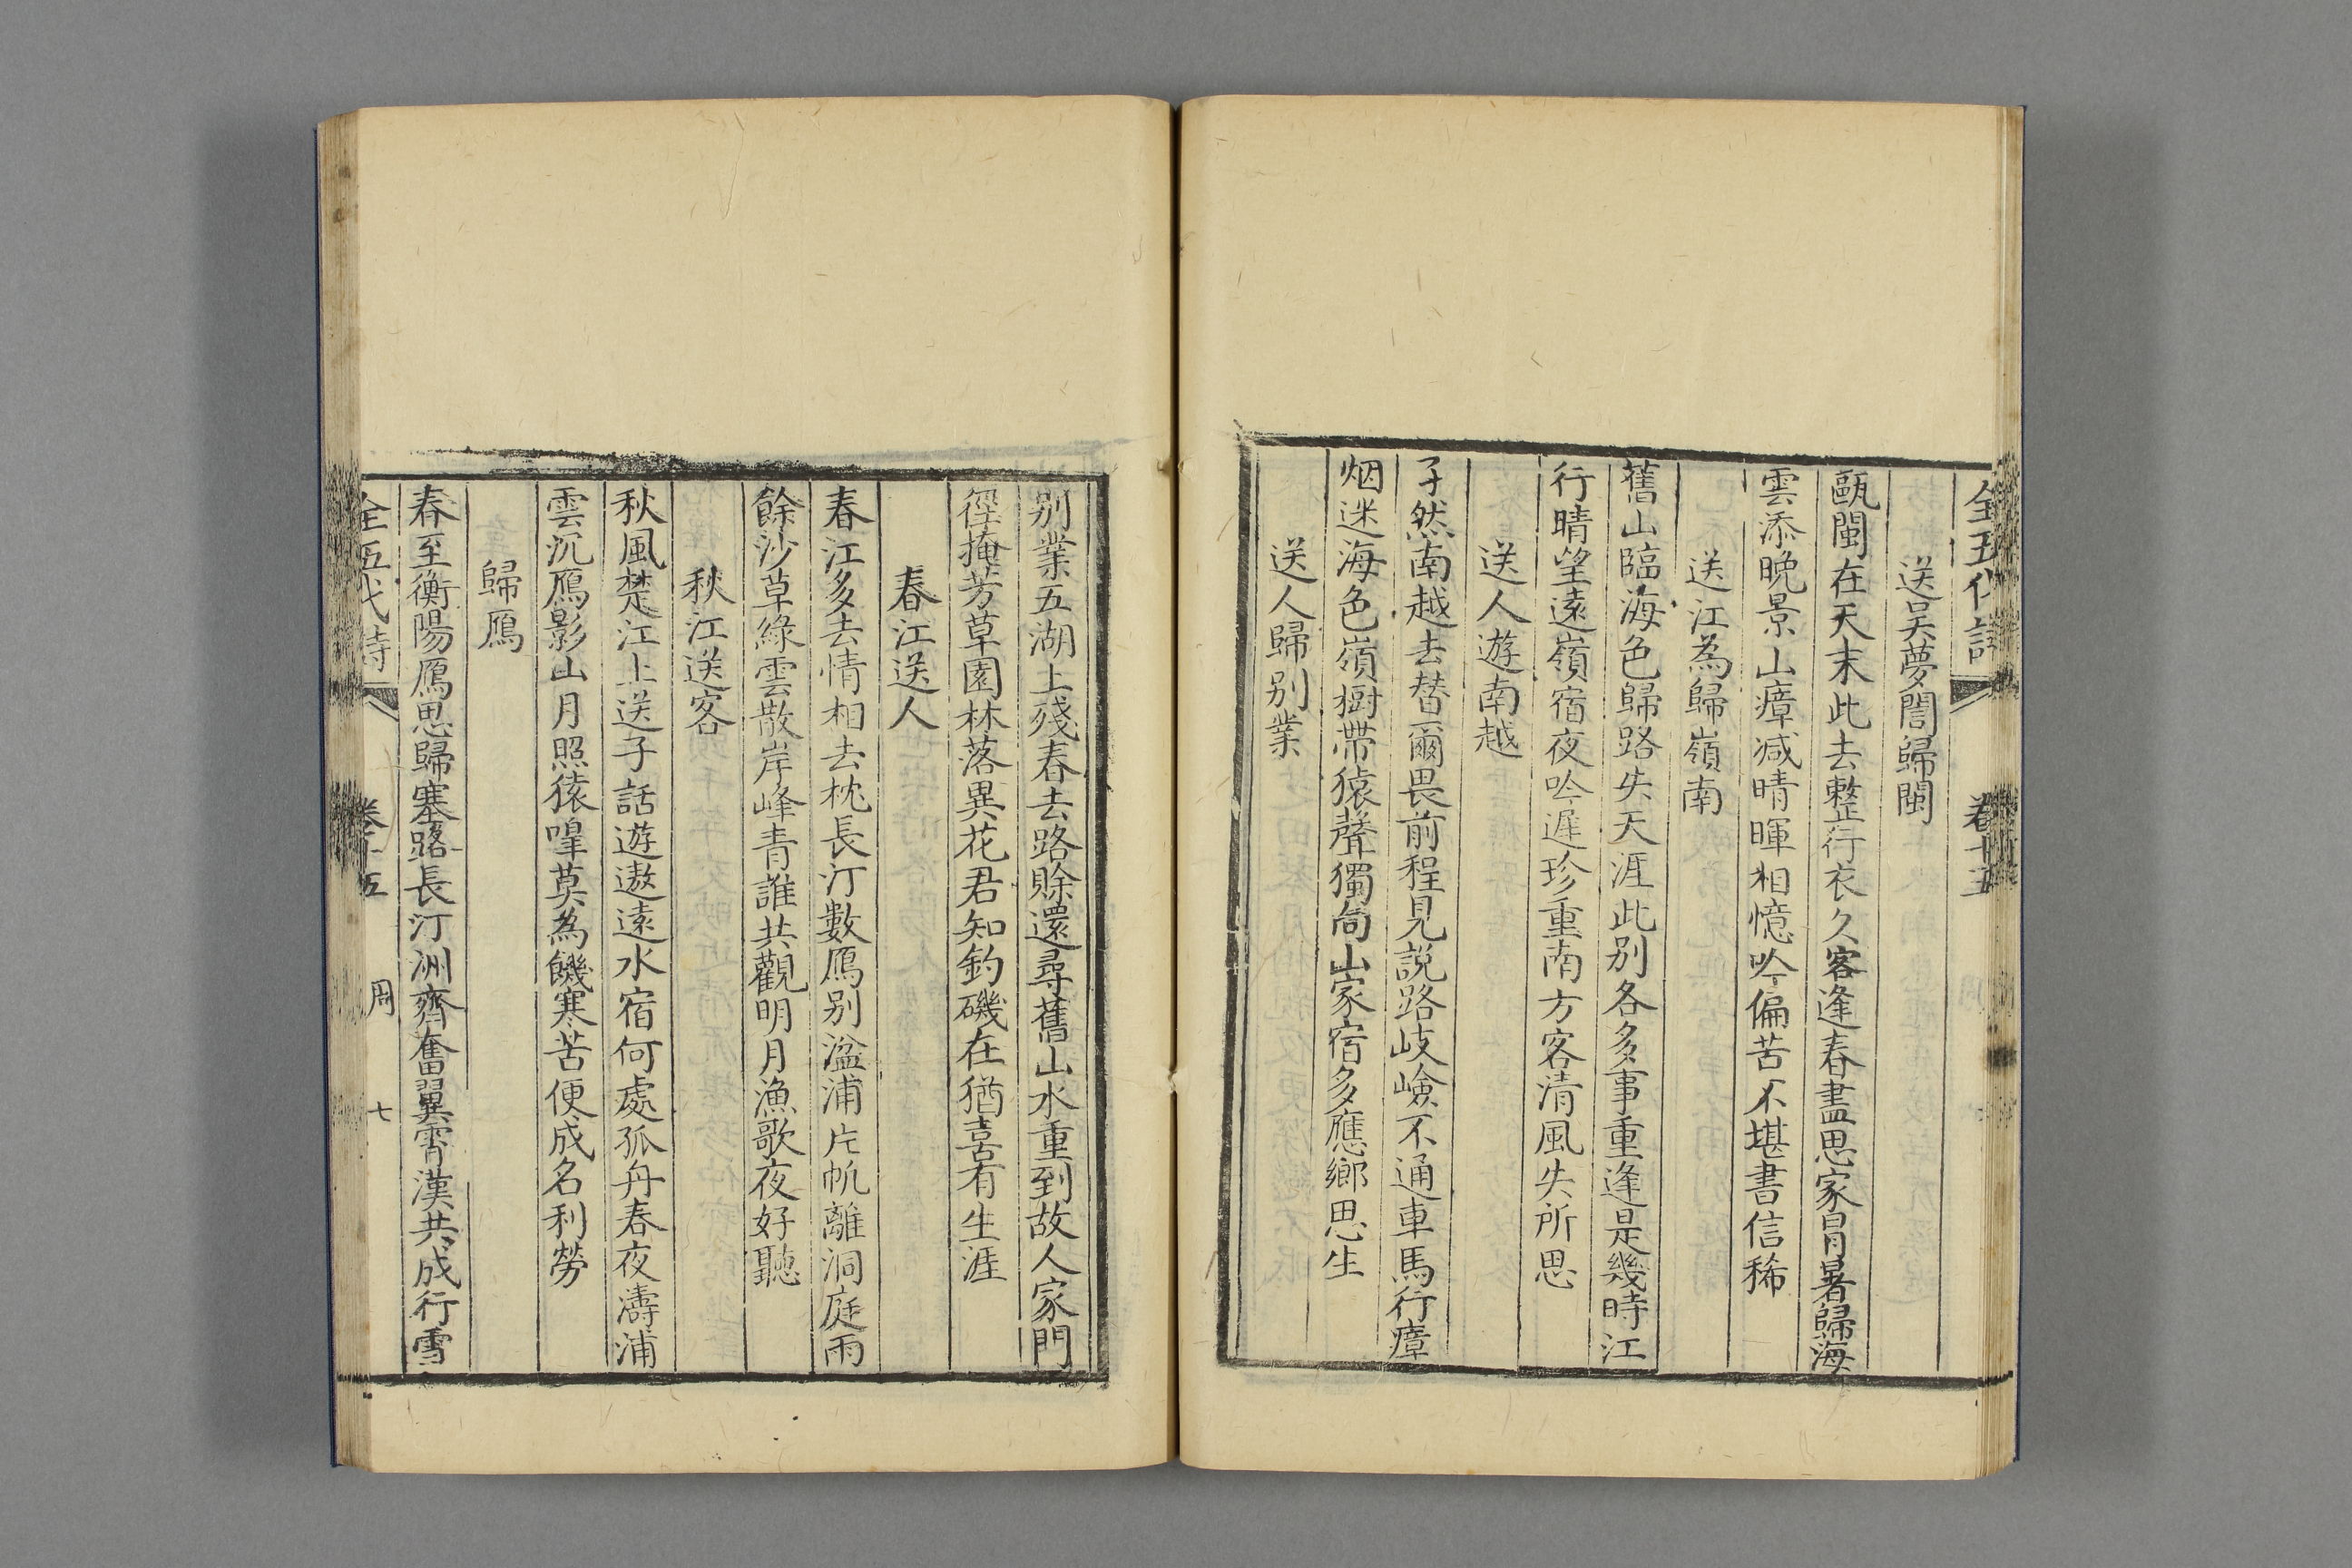 全五代詩 卷十五
送吴夢誾歸閩
甌閩在天末此去整行衣久客逢春盡思家冐暑歸海
雲添晚景山瘴减晴暉相憶吟偏苦不堪書信稀
送江為歸嶺南
舊山臨海色歸路失天涯此别各多事重逢是幾時江
行晴望遠嶺宿夜吟遲珍重南方客清風失所思
送人遊南越
孑然南越去替爾畏前程見説路岐嶮不通車馬行瘴
烟迷海色嶺樹帶猿聲獨向山家宿多應鄉思生
送人歸别業
别業五湖上殘春去路賒還尋舊山水重到故人家門
徑掩芳草園林落異花君知釣磯在猶喜有生涯
春江送人
春江多去情相去枕長汀數鴈别湓浦片帆離洞庭雨
餘沙草綠雲散岸峰青誰共觀明月漁歌夜好聽
秋江送客
秋風楚江上送子話遊遨遠水宿何處孤舟春夜濤浦
雲沉鴈影山月照猿嘷莫為饑寒苦便成名利勞
歸鴈
春至衡陽鴈思歸塞路長汀洲齊奮翼霄漢共成行雪
全五代詩 卷十五 周 七